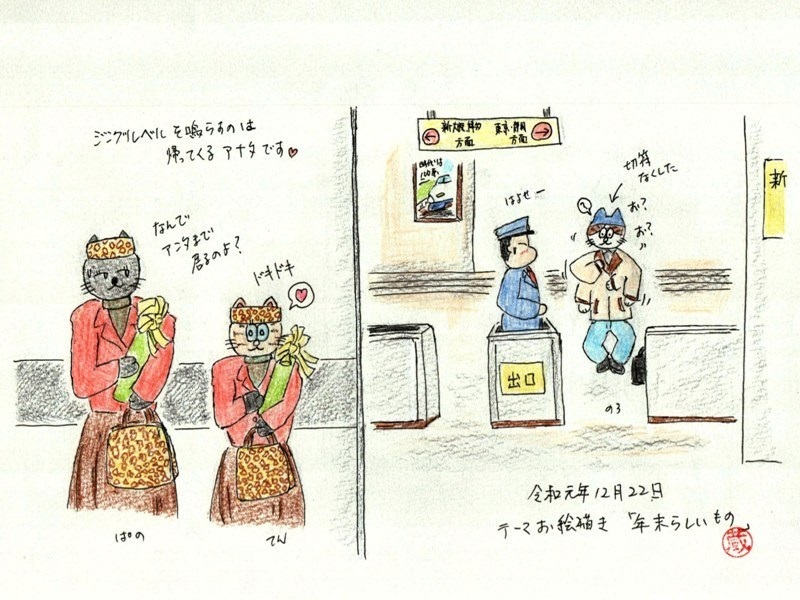 ジングルベルを鳴らすのは
帰ってくるアナタです♥
なんで
アンタまで
居るのよ?
ドキドキ
ぱの
てん
新大阪・博多
方面
東京・静岡
方面
はよせー
切符
なくした
?
お?
お?
出口
のろ
新
令和元年12月22日
テーマお絵描き「年末らしいもの」
蔵